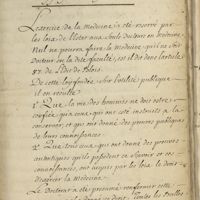 L'exercice de la medecine a été reservé par
les loix de l'Etat aux seuls docteurs en medecine.
Nul ne pourra faire la medecine, qu'il ne soit
docteur en la dite faculté, est il dit dans l'article
87. de l'Edit de Blois.
De cette loi fondée sur l'utilité publique
il en resulte
1° Que la vie des hommes ne doit être
confiée qu'à ceux qui ont été instruits à la
conserver, et qui ont donné des preuves publiques
de leurs connoissances.
2° Que tous ceux qui ont donné des preuves
autentiques qu'ils possedent ce savoir et ces
connoissances, ont acquis par les loix le droit
d'exercer la medecine.
Le Doctorat a été